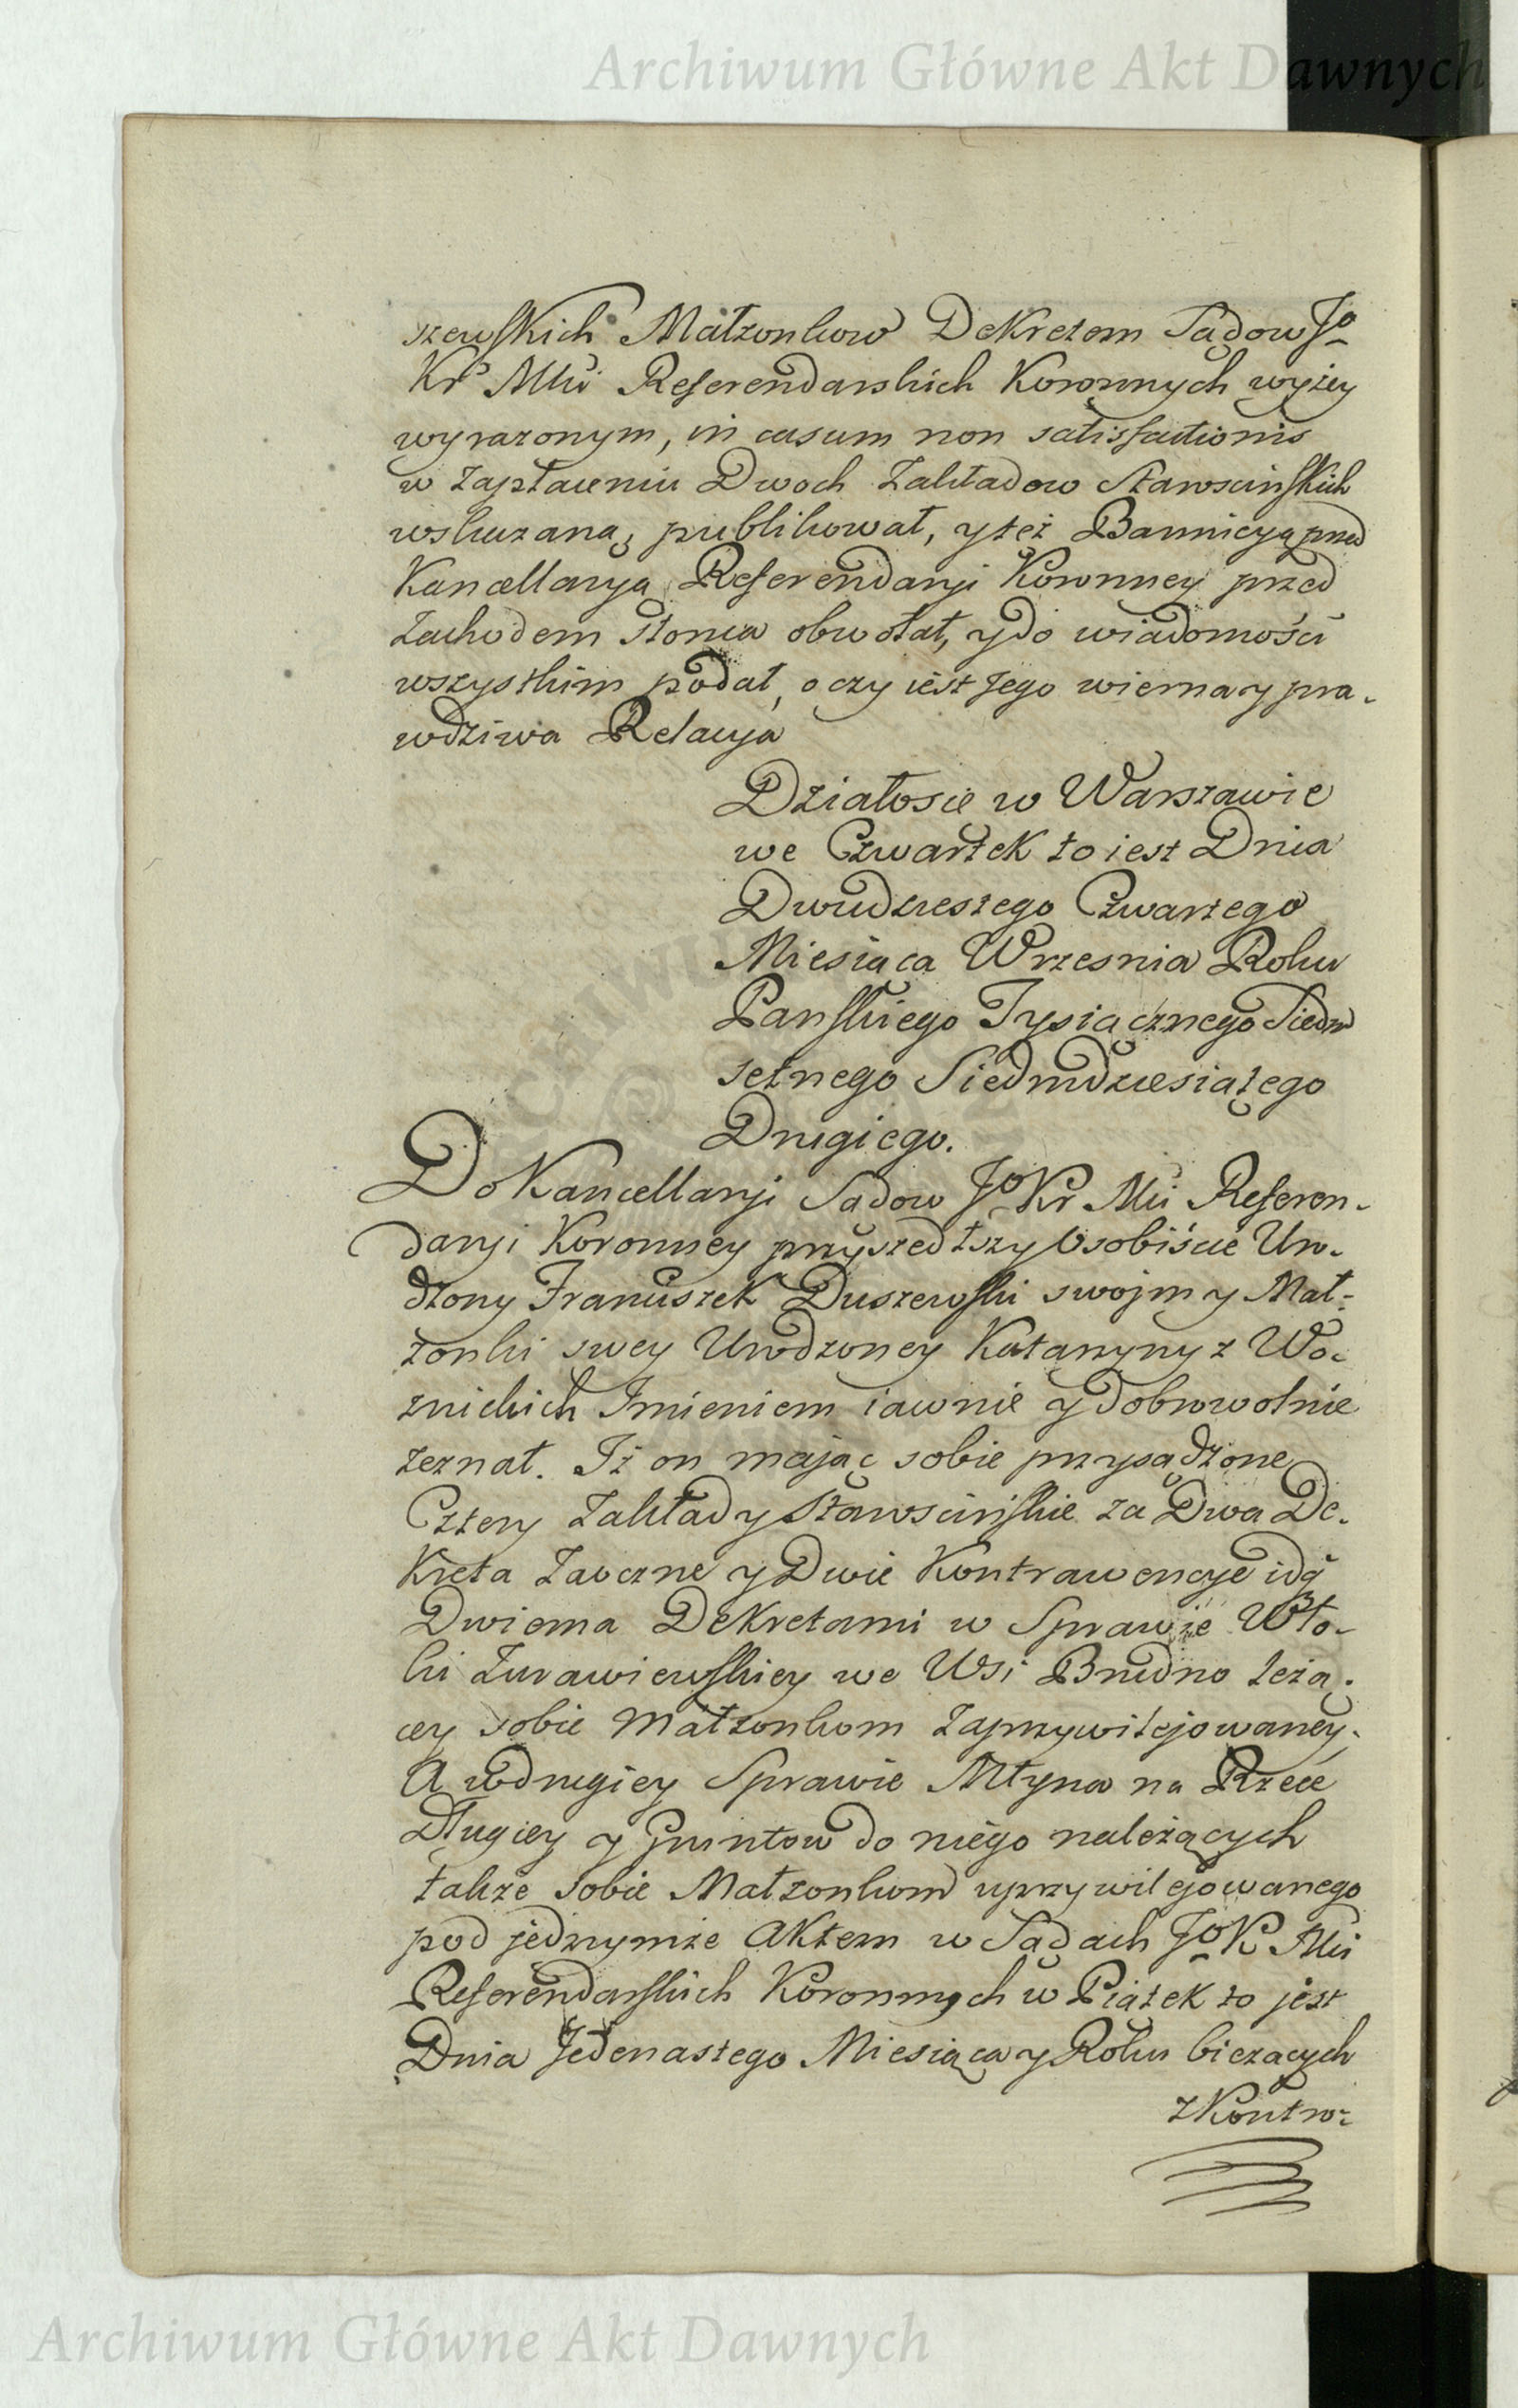 Archiwum Główne Akt Dawnych
szewskich Małzonkow Dekretem Sądow Jo
Kr Mći Referendarskich Koronnych wyżey
wyrazonym, in casum non satisfactionis
w zapłaceniu Dwoch Zakładow Starościńskich
wskazaną, publikował, y też Bannicyą przed
Kancellaryą Referendaryi Koronney przed
Zachodem słonca obwołał, y do wiadomości
wszystkim podał, o czy iest Jego wierna y pra-
wdziwa Relacya
Działosie w Warszawie
we Czwartek to iest Dnia
Dwudziestego Czwartego
Miesiąca Wrzesnia Roku
Panskiego Tysiącznego Siedm
setnego Siedmdziesiątego
Drugiego.
Do Kancellaryi Sądow Jo Kr Mći Referen-
daryi Koronney przyszedłszy Osobiście Uro-
dzony Franciszek Duszewski swojm y Mał-
zonki swey Urodzoney Katarzyny z Wo-
znickich Imieniem iawnie y dobrowolnie
zeznał. Iż on mając sobie przysądzone
Cztery Zakłady Starościńskie za Dwa De-
kreta Zaoczne y Dwie Kontrawencye idą
Dwiema Dekretami w Sprawie Wło-
ki Zurawiewskiey we Wsi Brudno leżą-
cey sobie Małzonkom zaprzywilejowaney.
A w drugiey Sprawie Młyna na Rzece
Długiey y Gruntow do niego należących
także sobie Małzonkom uprzywilejowanego
pod jednymże Aktem w Sądach Jo K Mći
Referendarskich Koronnych w Piątek to jest
Dnia Jedenastego Miesiąca y Roku bieżących
z Kontro-
Archiwum Główne Akt Dawnych